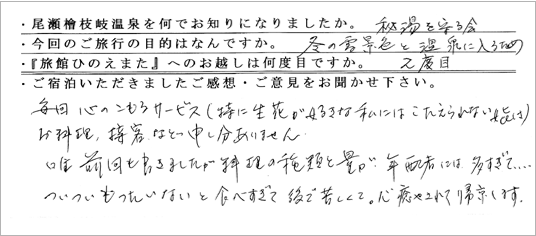 ・尾瀬檜枝岐温泉を何でお知りになりましたか。 秘湯を守る会
・今回のご旅行の目的はなんですか。 冬の雪景色と温泉に入る
・『旅館ひのえまた』へのお越しは何度目ですか。 2度目
・ご宿泊いただきましたご感想・ご意見をお聞かせ下さい。
毎回心のこもるサービス(特に生花が好きな私にはこたえられない
お料理、接客などの申し分ありません
唯 前回も書きましたが料理の種類と量が 年配者には多すぎて....
ついついもったいないと食べすぎて後で苦しくて。心癒やされて帰京します。